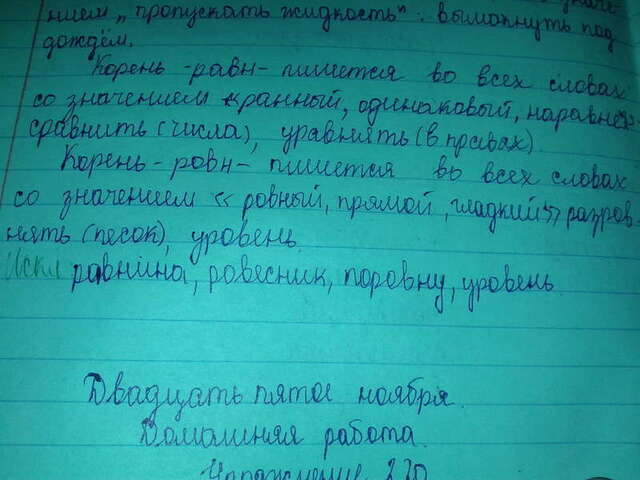 нием „пропускать жидкость": вымокнуть под
дождём.
Корень -равн- пишется во всех словах
со значением «ранный, одинаковый, наравне»:
сравнить (числа), уравнять (в правах).
Корень -ровн- пишется во всех словах
со значением «ровный, прямой, гладкий»: разров-
нять (песок), уровень.
Искл равнина, ровесник, поровну, уровень
Двадцать пятое ноября.
Домашняя работа.
Упражнение 220